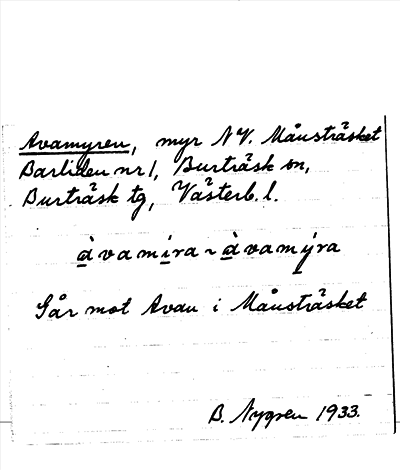 Avamyren, myr NV. Månsträsket
Barliden nr 1, Burträsk sn,
Burträsk tg, Västerb. l.
àvamira ~ àvamýra
Går mot Avan i Månsträsket
B. Nygren 1933.